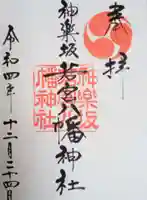 奉拝
神楽坂若宮八幡神社
神楽坂
若宮八
幡神社
令和四年十二月三十四日